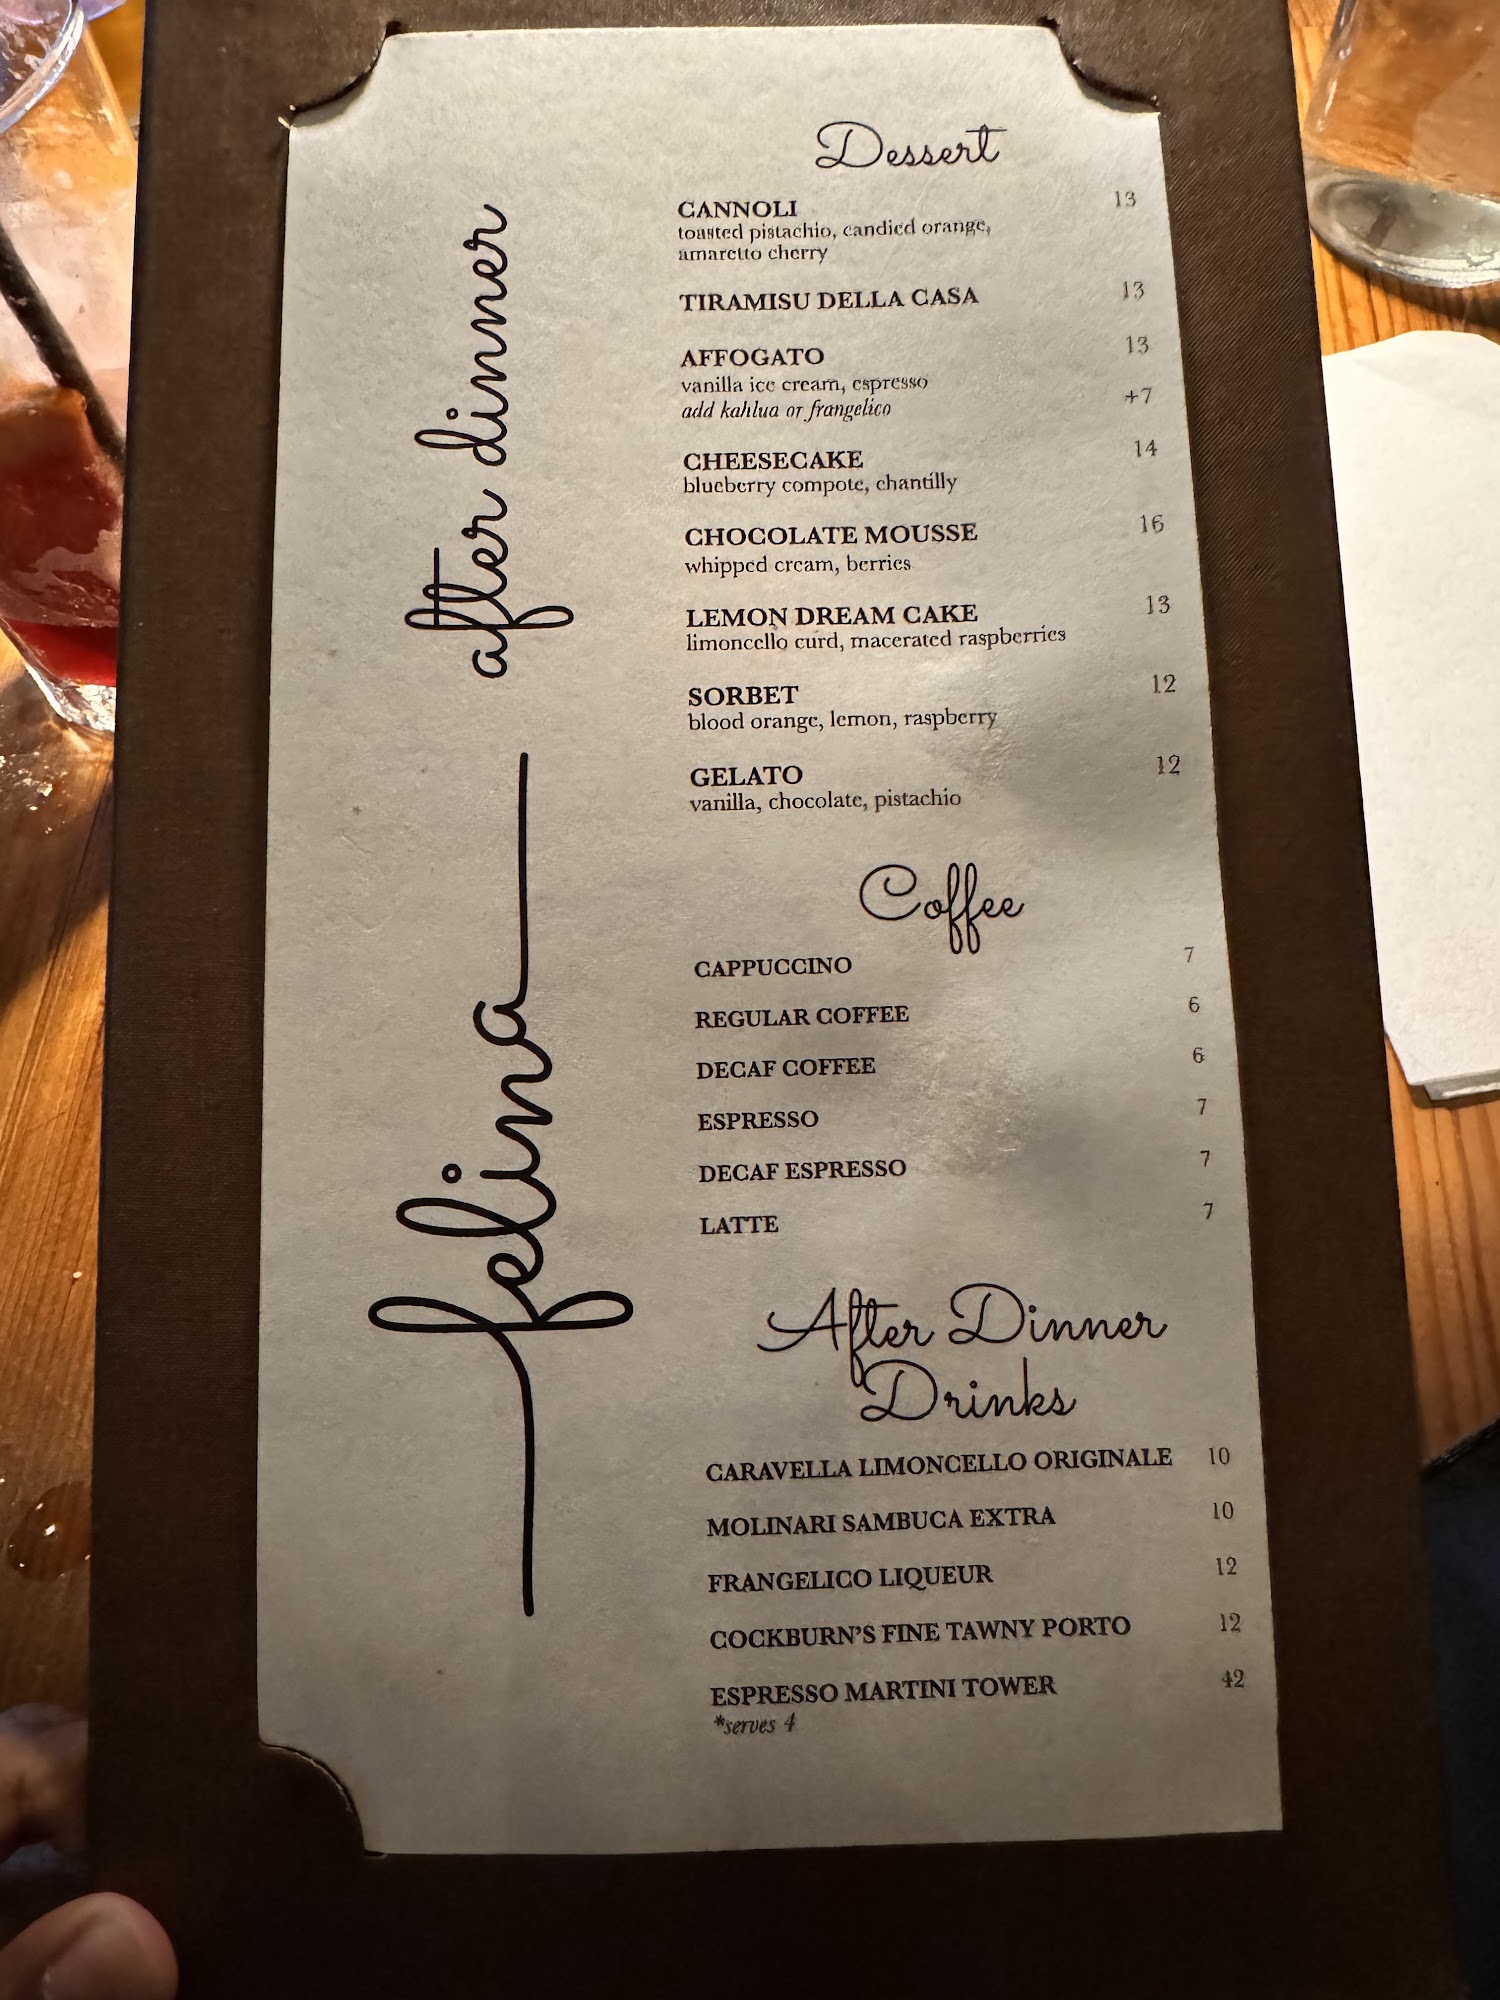 felina after dinner
Dessert
CANNOLI 13
toasted pistachio, candied orange,
amaretto cherry
TIRAMISU DELLA CASA 13
AFFOGATO 13
vanilla ice cream, espresso
add kahlua or frangelico +7
CHEESECAKE 14
blueberry compote, chantilly
CHOCOLATE MOUSSE 16
whipped cream, berries
LEMON DREAM CAKE 13
limoncello curd, macerated raspberries
SORBET 12
blood orange, lemon, raspberry
GELATO 12
vanilla, chocolate, pistachio
Coffee
CAPPUCCINO 7
REGULAR COFFEE 6
DECAF COFFEE 6
ESPRESSO 7
DECAF ESPRESSO 7
LATTE 7
After Dinner
Drinks
CARAVELLA LIMONCELLO ORIGINALE 10
MOLINARI SAMBUCA EXTRA 10
FRANGELICO LIQUEUR 12
COCKBURN'S FINE TAWNY PORTO 12
ESPRESSO MARTINI TOWER 42
*serves 4